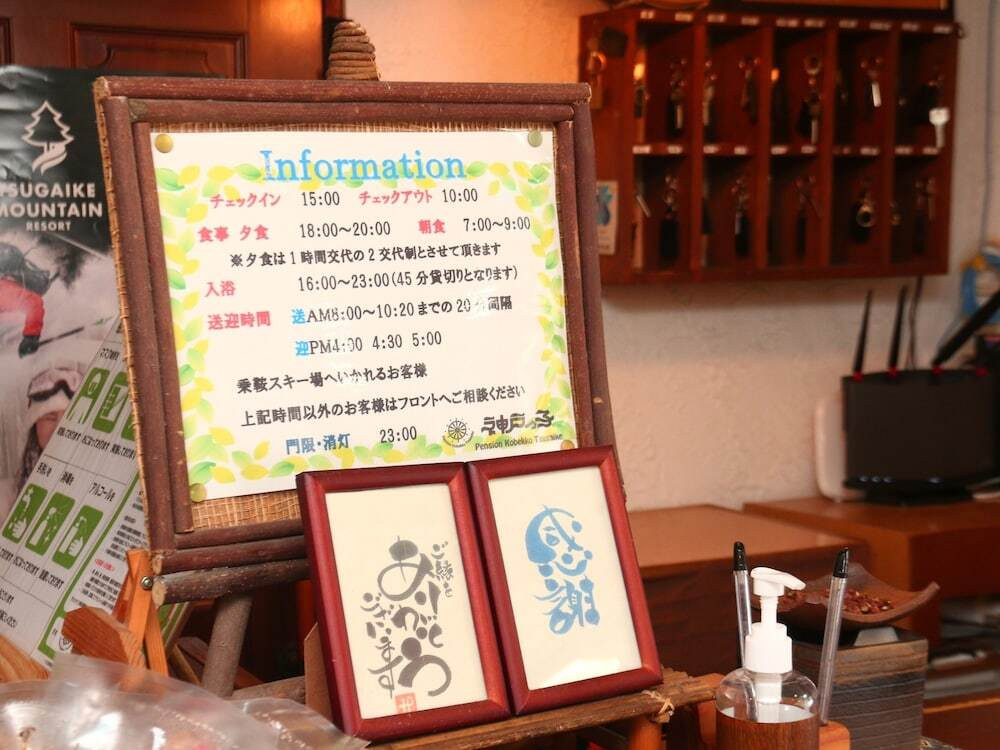 Information
チェックイン 15:00 チェックアウト 10:00
食事 夕食 18:00～20:00 朝食 7:00～9:00
※夕食は1時間交代の2交代制とさせて頂きます
入浴 16:00～23:00(45分貸切りとなります)
送迎時間 送AM8:00～10:20までの20分間隔
迎PM4:00 4:30 5:00
乗鞍スキー場へいかれるお客様
上記時間以外のお客様はフロントへご相談ください
門限・消灯 23:00
神戸っ子
Pension Kobekko
TSUGAIKE
MOUNTAIN
RESORT
手洗い
消毒を
アルコールを
ご縁を
ありがとう
ございます
感謝